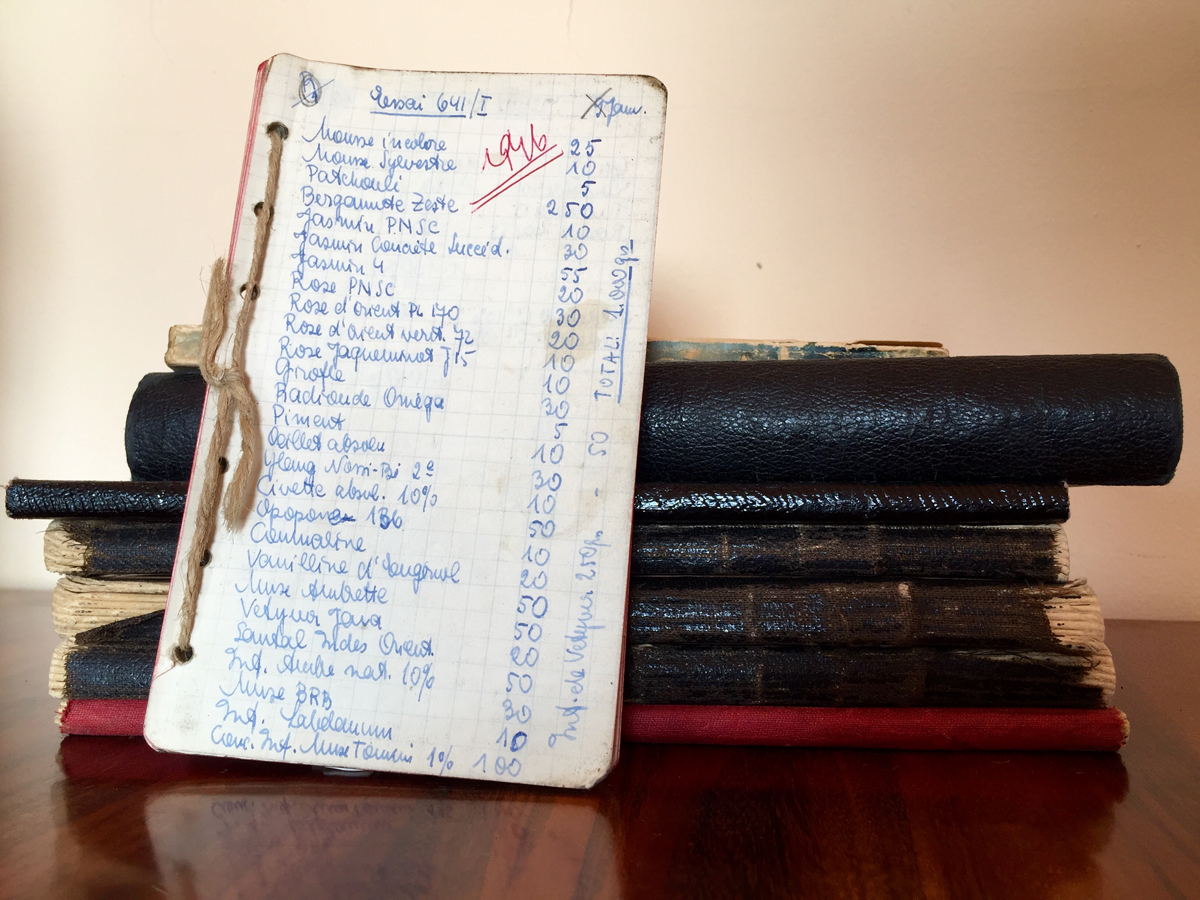 Essai 641/I
Janv.
1946
Mousse incolore 25
Mousse Sylvestre 10
Patchouli 5
Bergamote Zeste 250
Jasmin PNSC 10
Jasmin Concrète Succéd. 30
Jasmin 4 55
Rose PNSC 20
Rose d'orient PL 170 30
Rose d'orient vert. 72 20
Rose Jaqueminot J15 10
Girofle 10
Radiande Oméga 30
Piment 5
Oeillet absolu 10
Ylang Nossi-Bé 2ª 30
Civette absol. 10% 10
Opopon 50
Coumarine 10
Vanilline d'Eugénol 20
Musc Ambrette 50
Vetyver Java 50
Santal Indes Orient. 20
Inf. Ambre nat. 10% 50
Musc BRB 30
Inf. Labdanum 10
Conc. Inf. Musc Tonkin 1% 100
Inf. de Vetyver 250 gr. - 50 TOTAL: 1.000 gr